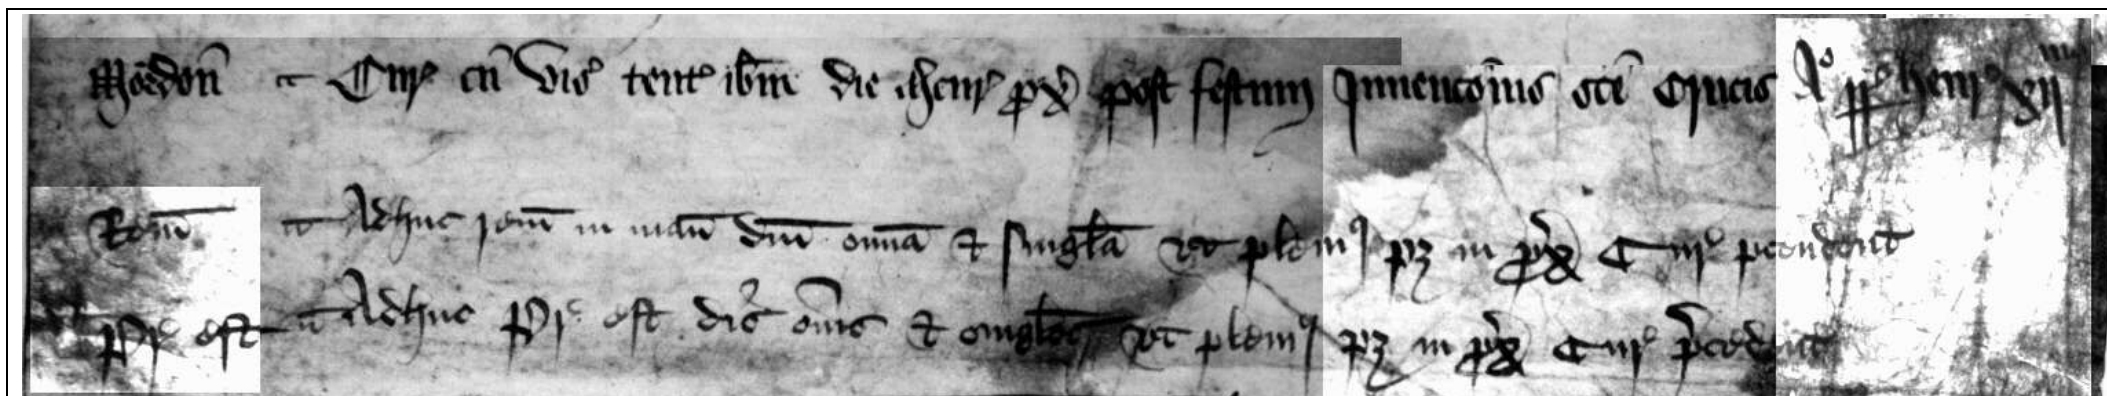 Mordoñ Cur̃ cũ vis̃ tent̃ ib̃m die Mercur̃ p̃x post festum Invenc̃onis sc̃e Crucis A° r̃ r̃ henr̃ xij
Rem̃ Adhuc rem̃ in man̄ dñi omĩa & singl̃a ut plenius p3 in p̃x Cur̃ precedent̃
Pr̃ est Adhuc Pr̃ est dist̃ om̃es & singl̃os ut plenius p3 in p̃x Cur̃ p̃ceden̄t